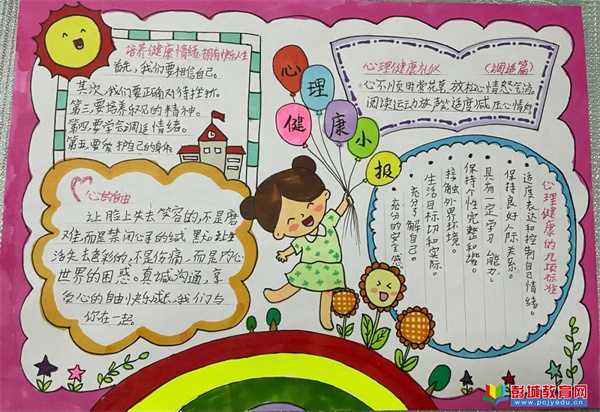 培养健康情绪,拥有快乐人生
首先,我们要相信自己。
其次,我们要正确对待挫折。
第三要培养乐观的精神。
第四要学会调适情绪。
第五要爱护自己的身体
心理健康小报
心理健康礼仪 (调适篇)
心不顺由赏花草,放松心情
阅读运动放轻 适度减压心情好
心的自由
让脸上失去笑容的,不是磨
难,而是禁闭心灵的缄默,让生
活失去色彩的,不是伤痛,而是内心
世界的困惑。真诚沟通,享
受心的自由快乐成长,我们与
你在一起。
心理健康的九项标准
适度表达和控制自己情绪。
保持良好人际关系。
具有一定学习能力。
保持个性完整和谐。
接触外界环境。
生活目标切和实际。
充分了解自己。
充分的安全感
彭城教育网
www.pcjyedu.cn